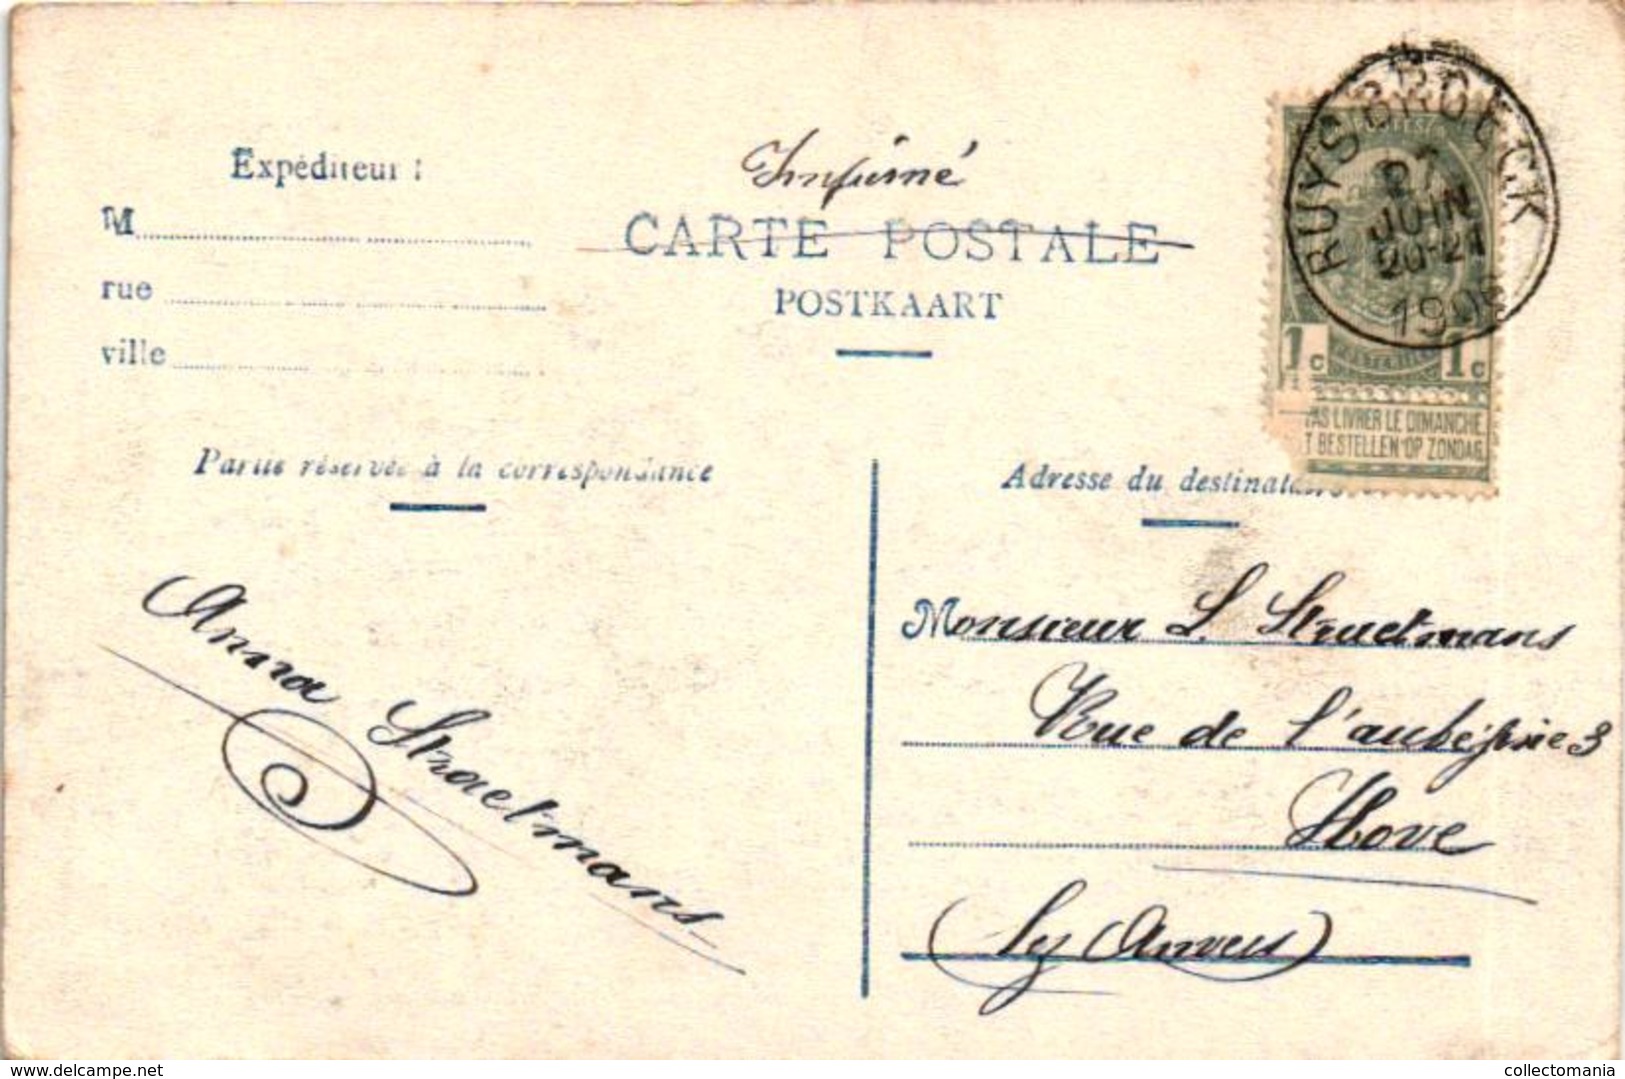 Expéditeur :
M
rue
ville
Imprimé
CARTE POSTALE
POSTKAART
RUYSBROECK
JUIN
20-21
1c 1c
PAS LIVRER LE DIMANCHE
T BESTELLEN OP ZONDAG
Partie réservée à la correspondance
Adresse du destinataire
Anna Straetmans
Monsieur L. Straetmans
Rue de l'aubépine 3
Hove
(Lez Anvers)
delcampe.net
collectomania